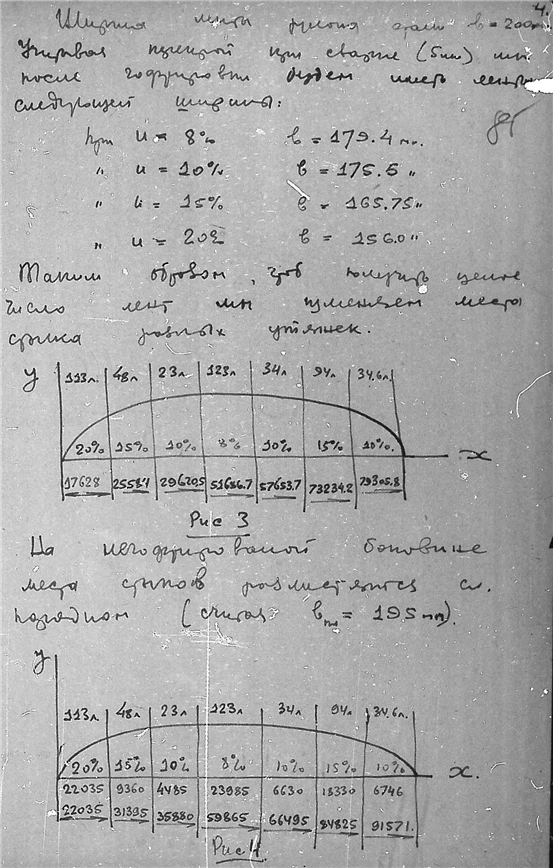 4.
Ширина ленты рулона стали b = 200мм.
Учитывая при сварке (5мм) мы
после гофрировки будем иметь ленты
следующей ширины:
85
при u = 8% b = 179.4 мм.
" u = 10% b = 175.5 "
" u = 15% b = 165.75 "
" u = 20% b = 156.0 "
Таким образом, чтоб получить целое
число лент мы изменяем места
стыка разных утяжек.
y 113л. 48л 23л 123л 34л 94л 34.6л.
20% 15% 10% 8% 10% 15% 10%. x
17628 25584 29620.5 51686.7 57653.7 73234.2 79305.8
Рис 3
На негофрированной боковине
места стыков разместятся сл.
порядком (считая b = 195 мм).
y
113л. 48л 23л 123л 34л 94л 34.6л.
20% 15% 10% 8% 10% 15% 10% x.
22035 9360 4485 23985 6630 18330 6746
22035 31395 35880 59865 66495 84825 91571.
Рис 4